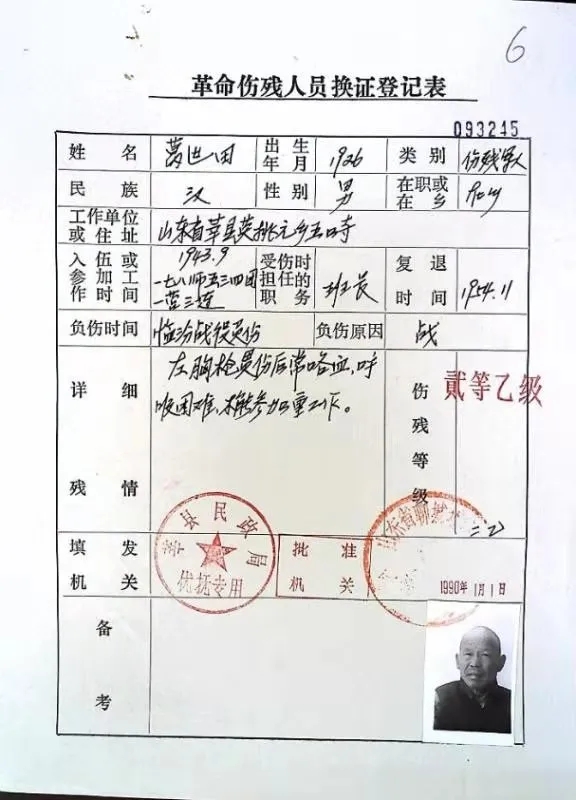 6
革命伤残人员换证登记表
093245
姓名 葛进田 出生年月 1926 类别 伤残军人
民族 汉 性别 男 在职或在乡 在乡
工作单位或住址 山东省莘县
入伍或参加工作时间 1943.9 一七八师五三四团一营三连 受伤时担任的职务 班长 复退时间 1954.11
负伤时间 临汾战役负伤 负伤原因 战
详细残情 左胸枪负伤后常咯血,呼
吸困难、不能参加重工作。
伤残等级 贰等乙级
二乙
填发机关 莘县民政局 优抚专用 批准机关 山东省聊城
1990年1月1日
备考